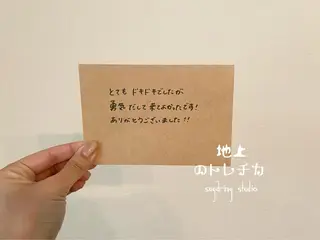 とても ドキドキでしたが
勇気だして来てよかったです!
ありがとうございました!!
地上
のトレチカ